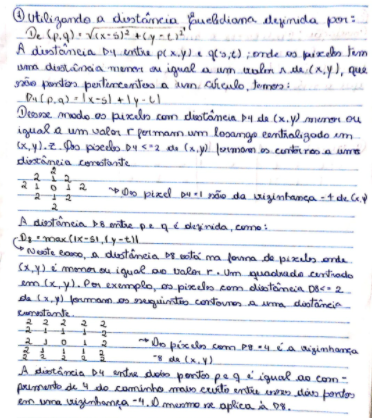 ① Utilizando a distância Euclidiana definida por:
De(p,q) = √(x-s)²+(y-t)²
A distância D4 entre p(x,y) e q(s,t), onde os pixels tem
uma distância menor ou igual a um valor r de (x,y), que
são pontos pertencentes a um círculo, temos:
D4(p,q) = |x-s|+|y-t|
Desse modo os pixels com distância D4 de (x,y) menor ou
igual a um valor r formam um losango centralizado em
(x,y). Os pixels D4<=2 de (x,y) formam os contornos a uma
distância constante
2
2 1 2
2 1 0 1 2 → Os pixel D4=1 são da vizinhança -4 de (x,y)
2 1 2
2
A distância D8 entre p e q é definida, como:
D8 = max(|x-s|,|y-t|)
→ Neste caso, a distância D8 está na forma de pixels onde
(x,y) é menor ou igual ao valor r. Um quadrado centrado
em (x,y). Por exemplo, os pixels com distância D8<=2
de (x,y) formam os seguintes contornos a uma distância
constante.
2 2 2 2 2
2 1 1 1 2
2 1 0 1 2 → Os pixels com D8=4 é a vizinhança
2 1 1 1 2 -8 de (x,y)
2 2 2 2 2
A distância D4 entre dois pontos p e q é igual ao com-
primento de 4 do caminho mais curto entre esses dois pontos
em uma vizinhança -4. O mesmo se aplica à D8.